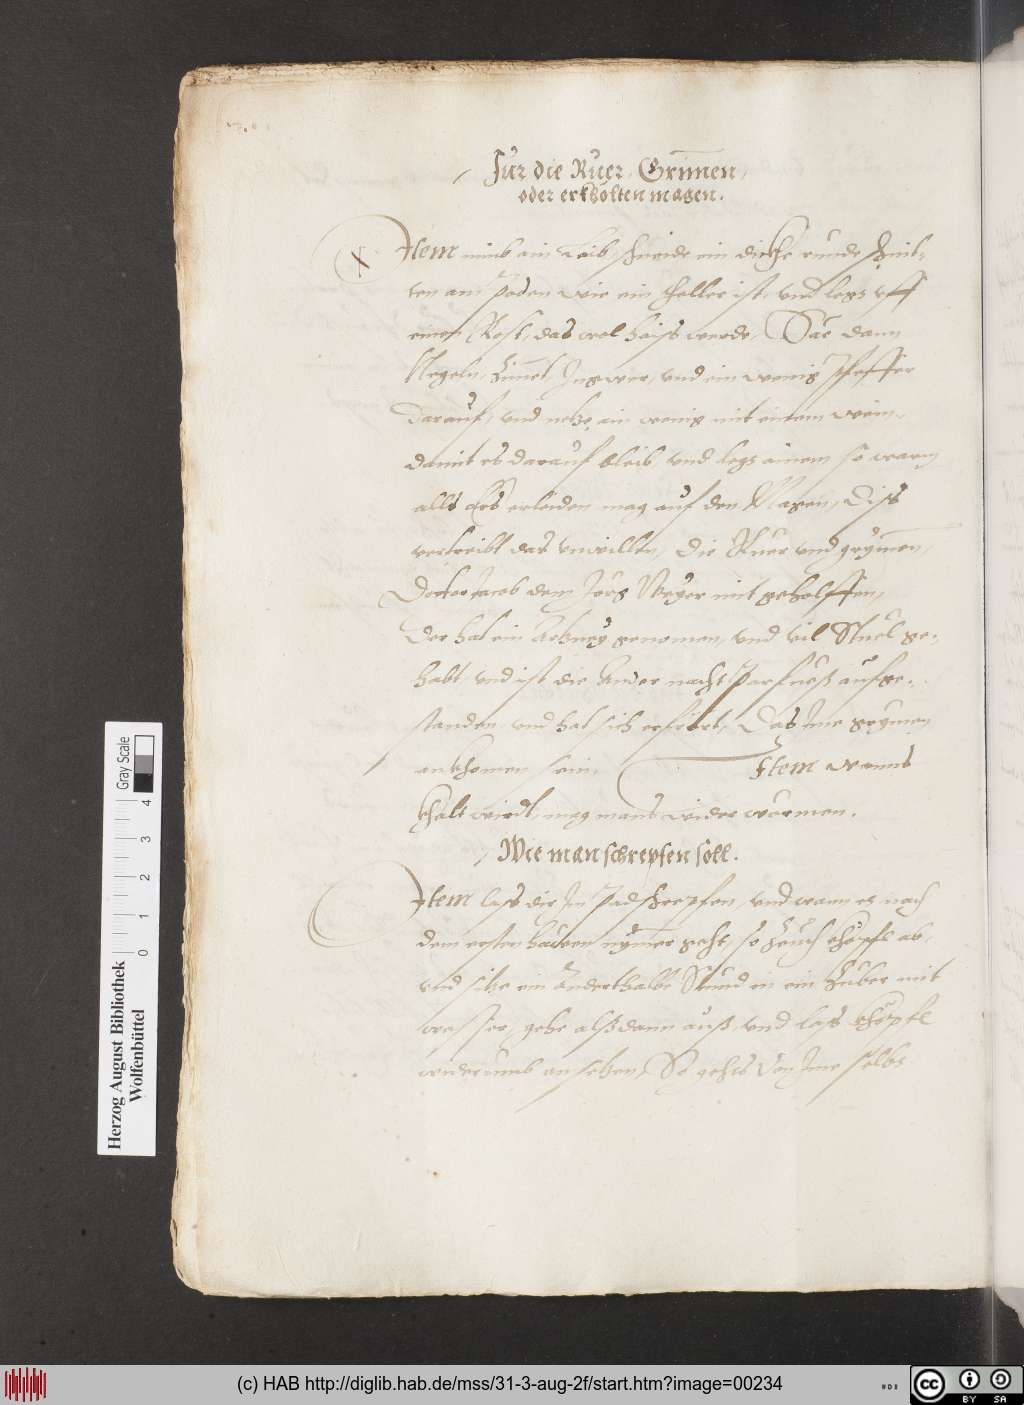 Für die Ruer, Grimen,
oder erkholten magen.
Item nimb ain Laib, schneide ein dickhe runde schnit-
ten am Poden wie ein Teller ist, und legs uff
einen Rost, das wol haiß werde, Säe dann
Negeln, Zimet, Ingwer, und ein wenig Pfeffer
darauf, und netze ain wenig mit einem wein,
damit es darauf bleib, und legs ainem so warm
alls ers erleiden mag auf den Magen, Diß
vertreibt das unwillen, die Ruer und grymen,
Doctor Jacob dem Jörg Meyer mit geholffen,
Der hat ein Artzney genomen, und vil Stuel ge-
habt, und ist die ander nacht Parfueß aufge-
standen, und hat sich erfrört, Das Ime grymen
ankhomen sein. Item wanns
khalt wirdt, mag mans wider wörmen.
Wie man schrepfen soll.
Item laß dir Im Pad schrepfen, und wann es nach
dem ersten hawen nymer geht, so zeuch khöpfl ab,
und sitze ein anderthalbe Stund in ein Zuber mit
wasser, gehe alßdann auß, und laß khöpfl
widerumb ansetzen, So gehts von Ime selbs
Herzog August Bibliothek
Wolfenbüttel
0 1 2 3 4
Gray Scale
(c) HAB http://diglib.hab.de/mss/31-3-aug-2f/start.htm?image=00234
cc BY SA